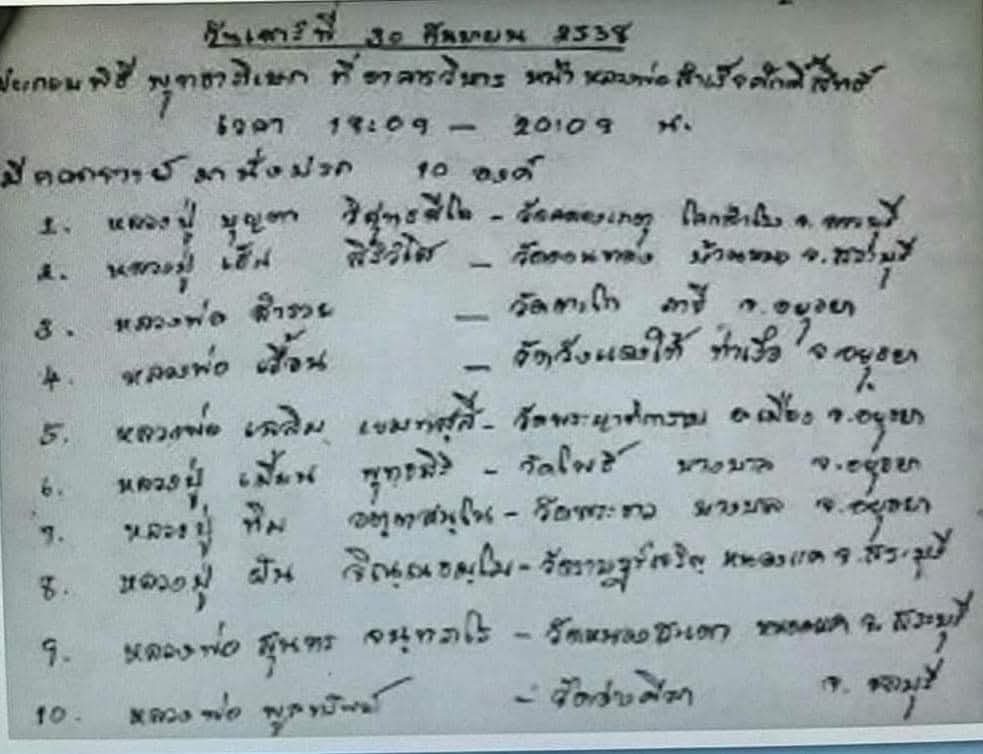 วันเสาร์ที่ 30 กันยายน 2538
ประกอบพิธี พุทธาภิเษก ที่ อาคารวิหาร หน้า หลวงพ่อสำเร็จศักดิ์สิทธิ์
เวลา 19:09 – 20:09 น.
มีคณาจารย์ มานั่งปรก 10 องค์
1. หลวงปู่ บุญตา วิสุทธสีโล – วัดคลองเกตุ โคกสำโรง จ.ลพบุรี
2. หลวงปู่ เฮ็น สิริวํโส – วัดดอนทอง บ้านหมอ จ.สระบุรี
3. หลวงพ่อ สำรวย – วัด ภาชี จ.อยุธยา
4. หลวงพ่อ เอื้อน – วัดวังแดงใต้ ท่าเรือ จ.อยุธยา
5. หลวงพ่อ เฉลิม เขมทสฺสี – วัดพระญาติการาม อ.เมือง จ.อยุธยา
6. หลวงปู่ เมี้ยน พุทธสิริ – วัดโพธิ์ บางบาล จ.อยุธยา
7. หลวงปู่ ทิม อตฺตสนฺโต – วัดพระขาว บางบาล จ.อยุธยา
8. หลวงปู่ ฝัน จิณฺณธมฺโม – วัดราษฎร์เจริญ หนองแค จ.สระบุรี
9. หลวงพ่อ สุนทร จนฺทาโภ – วัดหนองสะเดา หนองแค จ.สระบุรี
10. หลวงพ่อ พูลทรัพย์ – วัดอ่างศิลา จ. ชลบุรี